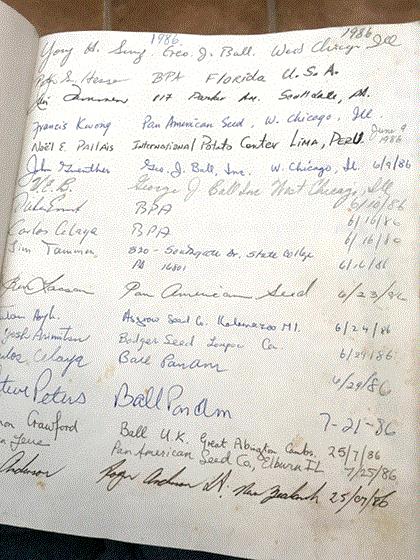 1986 1986
Yong H. Sung. Geo. J. Ball. West Chicago Ill
BPA Florida U.S.A.
117 Parker Av. Scottdale, PA.
Francis Kwong Pan American Seed, W. Chicago, Ill.
Noël E. Pallais International Potato Center Lima, Peru June 9 1986
John Guenther Geo. J. Ball, Inc. W. Chicago, Il 6/9/86
George J Ball Inc West Chicago, Ill
BPA 6/10/86
Carlos Celaya BPA 6/16/86
6/16/86
Jim Tammen 520 - Southgate Dr, State College
PA 16801 6/16/86
Ken Larson Pan American Seed 6/23/86
Asgrow Seed Co. Kalamazoo MI. 6/24/86
Seed Co. 6/29/86
Celaya Ball PanAm 6/29/86
Steve Peters Ball PanAm 7-21-86
Crawford Ball U.K. Great Abington Cambs. 25/7/86
Pan American Seed Co, Elburn IL 7/25/86
Anderson Roger Anderson New Zealand 25/07/86